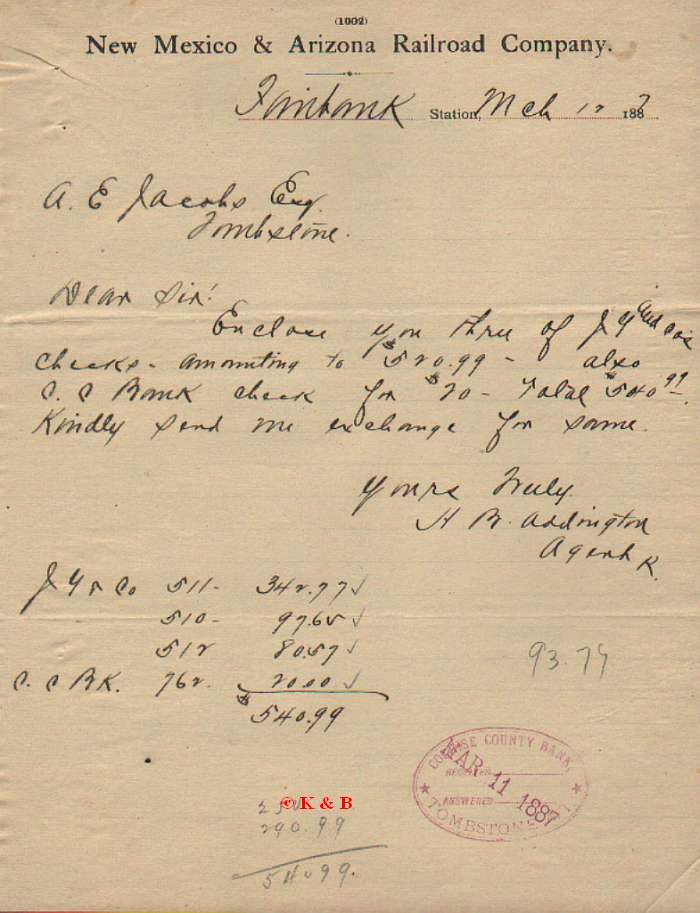 (1002)
New Mexico & Arizona Railroad Company.
Fairbank Station, Mch 12 1887
A. E Jacobs Esq.
Tombstone.
Dear Sir!
Enclose you three of J Y
checks - amounting to $520.99 - also
C. C Bank check for $20 - Total $540 99
Kindly send me exchange for same.
Yours Truly
H B. Addington
Agent K.
J Y & Co 511- 342.77 ✓
510- 97.65 ✓
512 80.57 ✓
C. C BK. 762. 20.00 ✓
$540.99
93.79
COCHISE COUNTY BANK,
RECEIVED
MAR 11 1887
ANSWERED
TOMBSTONE
250
© K & B
290.99
540.99.